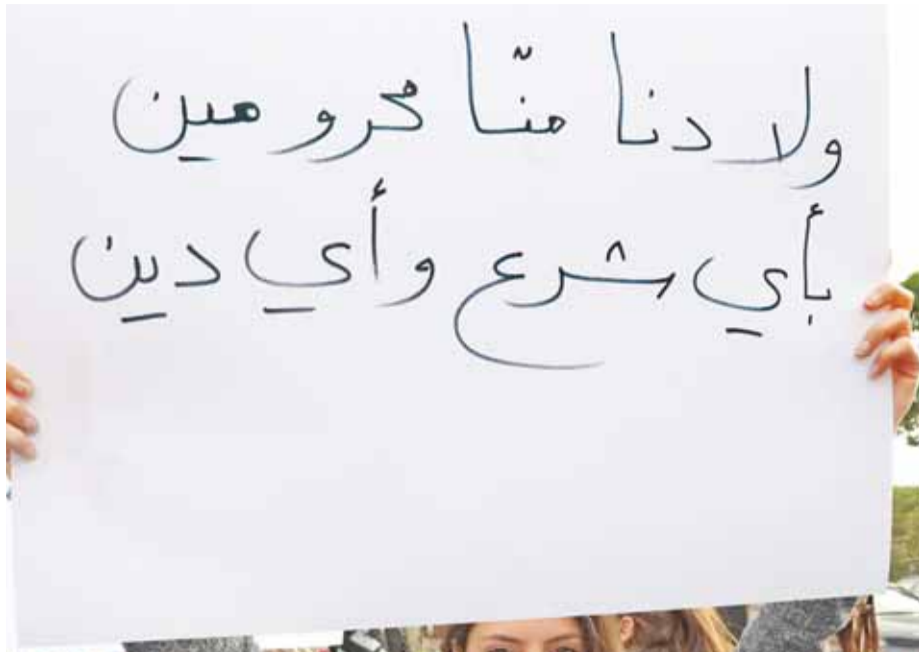 ولادنا منّا محرومين
بأي شرع وأي دين